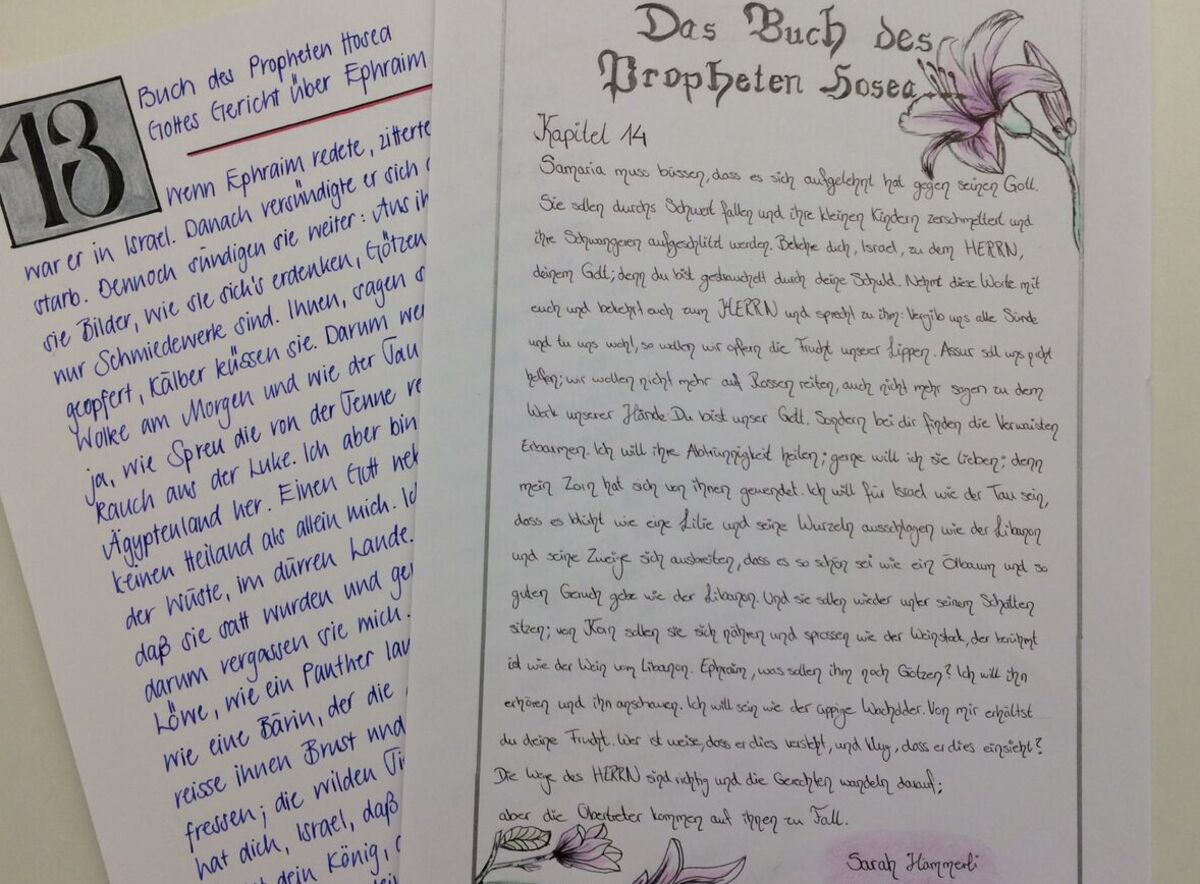 13
Buch des Propheten Hosea
Gottes Gericht über Ephraim
Wenn Ephraim redete, zitterte
war er in Israel. Danach versündigte er sich
starb. Dennoch sündigen sie weiter: Aus ih
sie Bilder, wie sie sich's erdenken, Götzen
nur Schmiedewerk sind. Ihnen, sagen s
geopfert, Kälber küssen sie. Darum we
Wolke am Morgen und wie der Tau
ja, wie Spreu die von der Tenne ve
Rauch aus der Luke. Ich aber bin
Ägyptenland her. Einen Gott neb
keinen Heiland als allein mich. Ic
der Wüste, im dürren Lande.
daß sie satt wurden und ge
darum vergassen sie mich.
Löwe, wie ein Panther lau
wie eine Bärin, der die
reisse ihnen Brust und
fressen; die wilden Ti
hat dich, Israel, daß
dein König,
Das Buch des
Propheten Hosea
Kapitel 14
Samaria muss büssen, dass es sich aufgelehnt hat gegen seinen Gott.
Sie sollen durchs Schwert fallen und ihre kleinen Kindern zerschmettert und
ihre Schwangeren aufgeschlitzt werden. Bekehre dich, Israel, zu dem HERRN,
deinem Gott; denn du bist gestrauchelt durch deine Schuld. Nehmt diese Worte mit
euch und bekehrt euch zum HERRN und sprecht zu ihm: Vergib uns alle Sünde
und tu uns wohl, so wollen wir opfern die Frucht unserer Lippen. Assur soll uns nicht
helfen; wir wollen nicht mehr auf Rossen reiten, auch nicht mehr sagen zu dem
Werk unserer Hände: Du bist unser Gott. Sondern bei dir finden die Verwaisten
Erbarmen. Ich will ihre Abtrünnigkeit heilen; gerne will ich sie lieben; denn
mein Zorn hat sich von ihnen gewendet. Ich will für Israel wie der Tau sein,
dass es blüht wie eine Lilie und seine Wurzeln ausschlagen wie der Libanon
und seine Zweige sich ausbreiten, dass es so schön sei wie ein Ölbaum und so
guten Geruch gebe wie der Libanon. Und sie sollen wieder unter seinem Schatten
sitzen; von Korn sollen sie sich nähren und sprossen wie der Weinstock, der berühmt
ist wie der Wein vom Libanon. Ephraim, was sollen ihm noch Götzen? Ich will ihn
erhören und ihn anschauen. Ich will sein wie der üppige Wacholder. Von mir erhältst
du deine Frucht. Wer ist weise, dass er dies versteht, und klug, dass er dies einsieht?
Die Wege des HERRN sind richtig und die Gerechten wandeln darauf;
aber die Übertreter kommen auf ihnen zu Fall.
Sarah Hämmerli